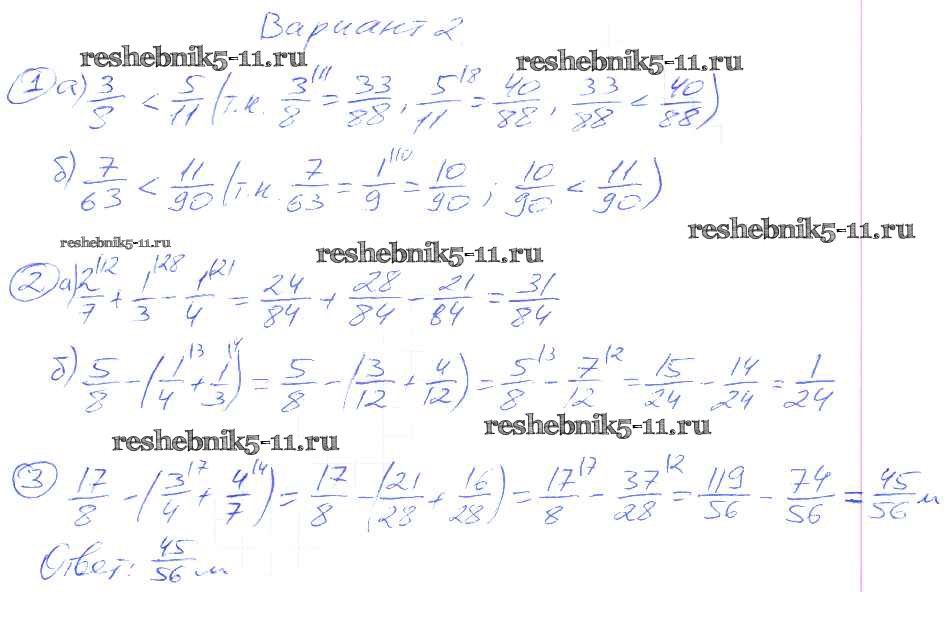 Вариант 2
reshebnik5-11.ru reshebnik5-11.ru
① а) 3/8 < 5/11 (т.к. 3/8 |11 = 33/88, 5/11 |8 = 40/88, 33/88 < 40/88)
б) 7/63 < 11/90 (т.к. 7/63 = 1/9 |10 = 10/90; 10/90 < 11/90)
reshebnik5-11.ru reshebnik5-11.ru reshebnik5-11.ru
② а) 2/7 |12 + 1/3 |28 - 1/4 |21 = 24/84 + 28/84 - 21/84 = 31/84
б) 5/8 - (1/4 |3 + 1/3 |4) = 5/8 - (3/12 + 4/12) = 5/8 |3 - 7/12 |2 = 15/24 - 14/24 = 1/24
reshebnik5-11.ru reshebnik5-11.ru
③ 17/8 - (3/4 |7 + 4/7 |4) = 17/8 - (21/28 + 16/28) = 17/8 |7 - 37/28 |2 = 119/56 - 74/56 = 45/56 м
Ответ: 45/56 м